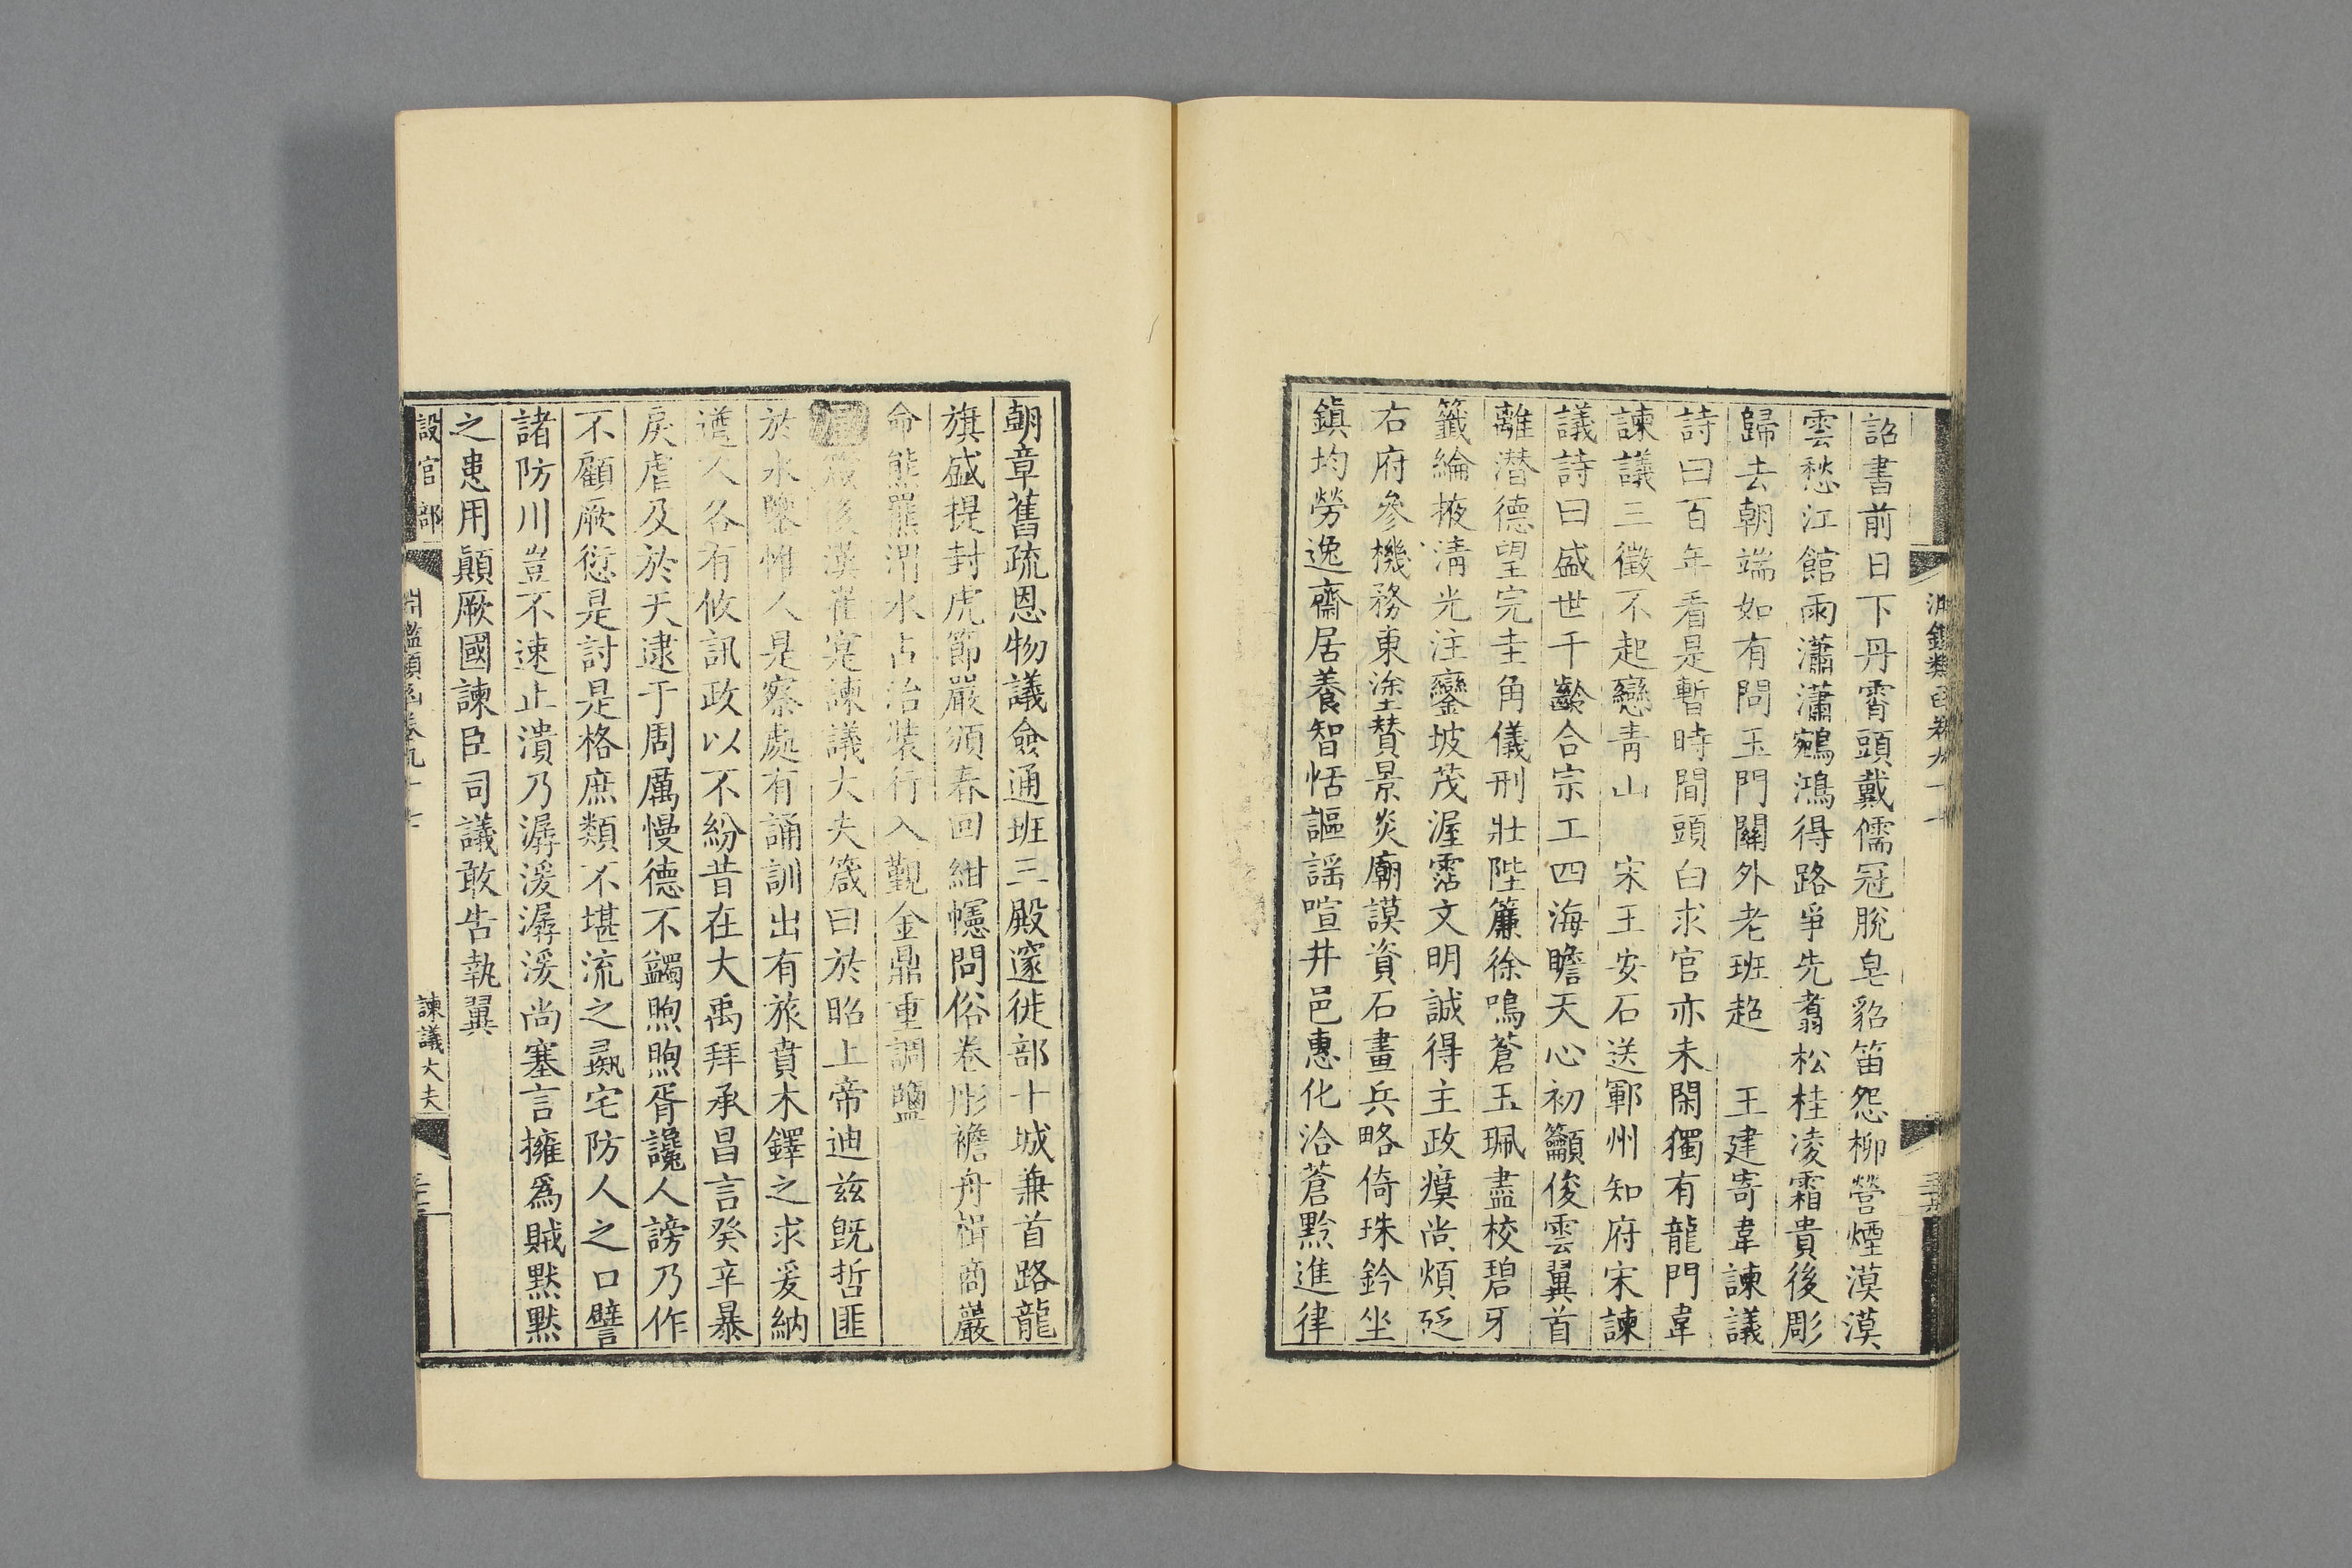 詔書前日下丹霄頭戴儒冠脫皂貂笛怨柳營煙漠漠
雲愁江館雨瀟瀟鵷鴻得路爭先翥松桂凌霜貴後彫
歸去朝端如有問玉門關外老班超　王建寄韋諫議
詩曰百年看是暫時間頭白求官亦未閑獨有龍門韋
諫議三徵不起戀青山　宋王安石送鄆州知府宋諫
議詩曰盛世千齡合宗工四海瞻天心初籲俊雲翼首
離潛德望完圭角儀刑壯陛簾徐鳴蒼玉珮盡校碧牙
籤綸掖清光注鑾坡茂渥霑文明誠得主政瘼尚煩砭
右府參機務東塗贊景炎廟謨資石畫兵略倚珠鈐坐
鎮均勞逸齋居養智恬謳謠喧井邑惠化洽蒼黔進律
朝章舊疏恩物議僉通班三殿邃徙部十城兼首路龍
旗盛提封虎節嚴頒春回紺幰問俗卷彤襜舟楫商巖
命熊羆渭水占治裝行入覲金鼎重調鹽
箴後漢崔寔諫議大夫箴曰於昭上帝迪茲既哲匪
於水鑒惟人是察處有誦訓出有旅賁木鐸之求爰納
遒人各有攸訊政以不紛昔在大禹拜承昌言癸辛暴
戾虐及於天逮于周厲慢德不蠲煦煦胥讒人謗乃作
不顧厥愆是討是格庶類不堪流之彘宅防人之口譬
諸防川豈不速止潰乃潺湲潺湲尚塞言擁爲賊默默
之患用顛厥國諫臣司議敢告執翼
設官部
淵鑑類函卷九十七
諫議大夫